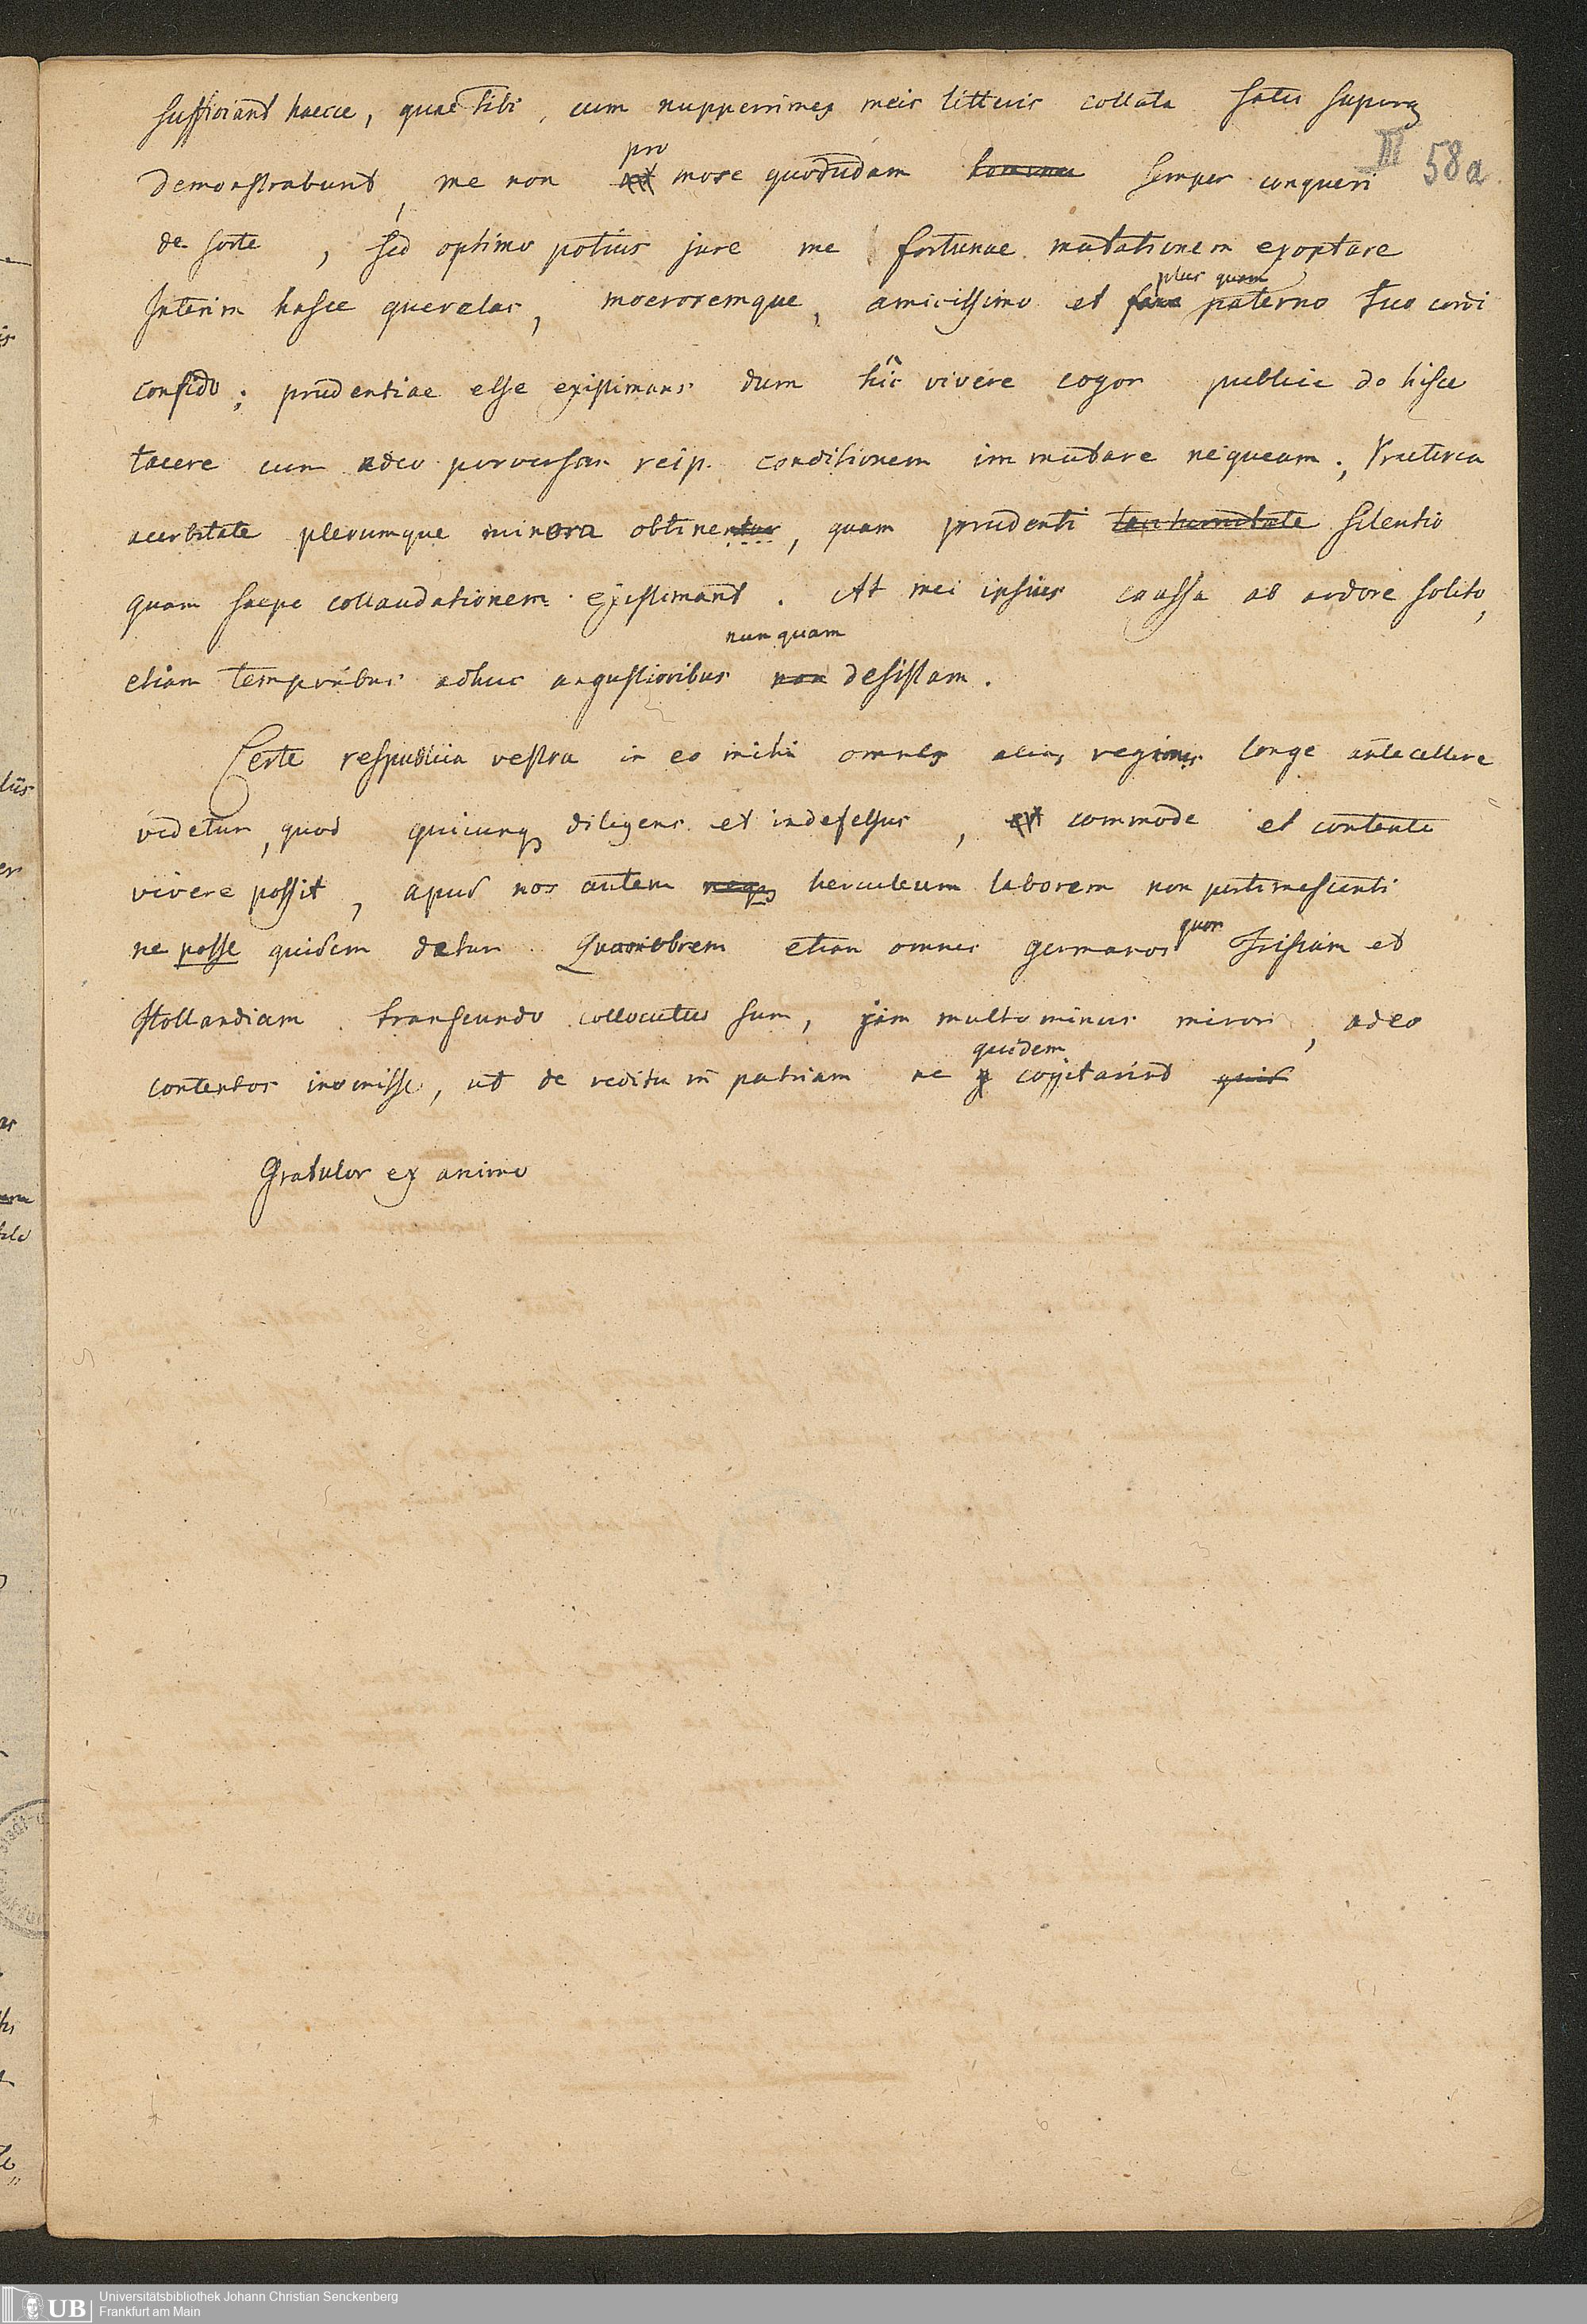 sufficiant haecce, quae Tibi, cum nupperrimes meis litteris collata satis superq
II 58a
pro
demonstrabunt, me non more quodudam semper conqueri
de sorte, sed optimo potius jure me fortunae mutationem exoptare
plus quam
Interim hasce querelas, moeroremque, amicissimo et paterno Tuo cordi
confido; prudentiae esse existimans dum hîc vivere cogor publice de hisce
tacere cum adeo perversam reip. conditionem immutare nequeam; Praeterea
acerbitate plerumque minora obtinentur, quam prudenti taciturnitate silentio
quam saepe collaudationem existimant. At mei ipsius caussa ab ardore solito,
nunquam
etiam temporibus adhuc angustioribus non desistam.
Certe respublica vestra in eo mihi omnes alias regiones longe antecellere
videtur, quod quicunq diligens et indefessus, commode et contente
vivere possit, apud nos autem neq herculeum laborem non pertimescenti
quos
ne posse quidem datur. Quamobrem etiam omnes germanos Frisiam et
Hollandiam transeundo collocutus sum, jam multo minus miror, adeo
quidem
contentos invenisse, ut de reditu in patriam ne cogitarint quid
Gratulor ex animo
UB Universitätsbibliothek Johann Christian Senckenberg
Frankfurt am Main